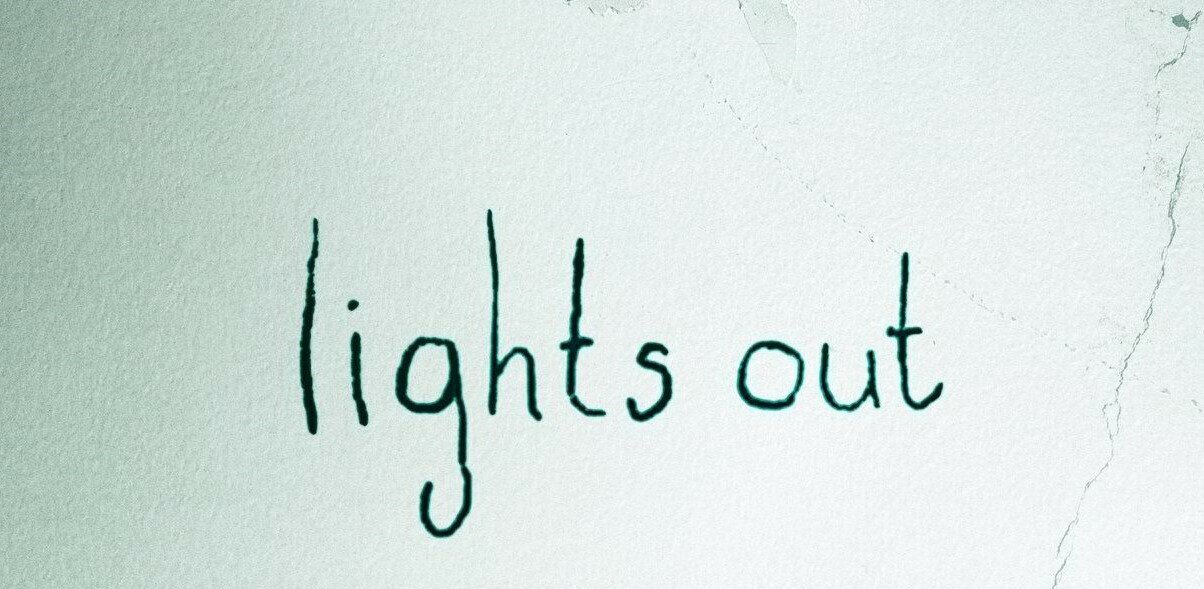 lights out